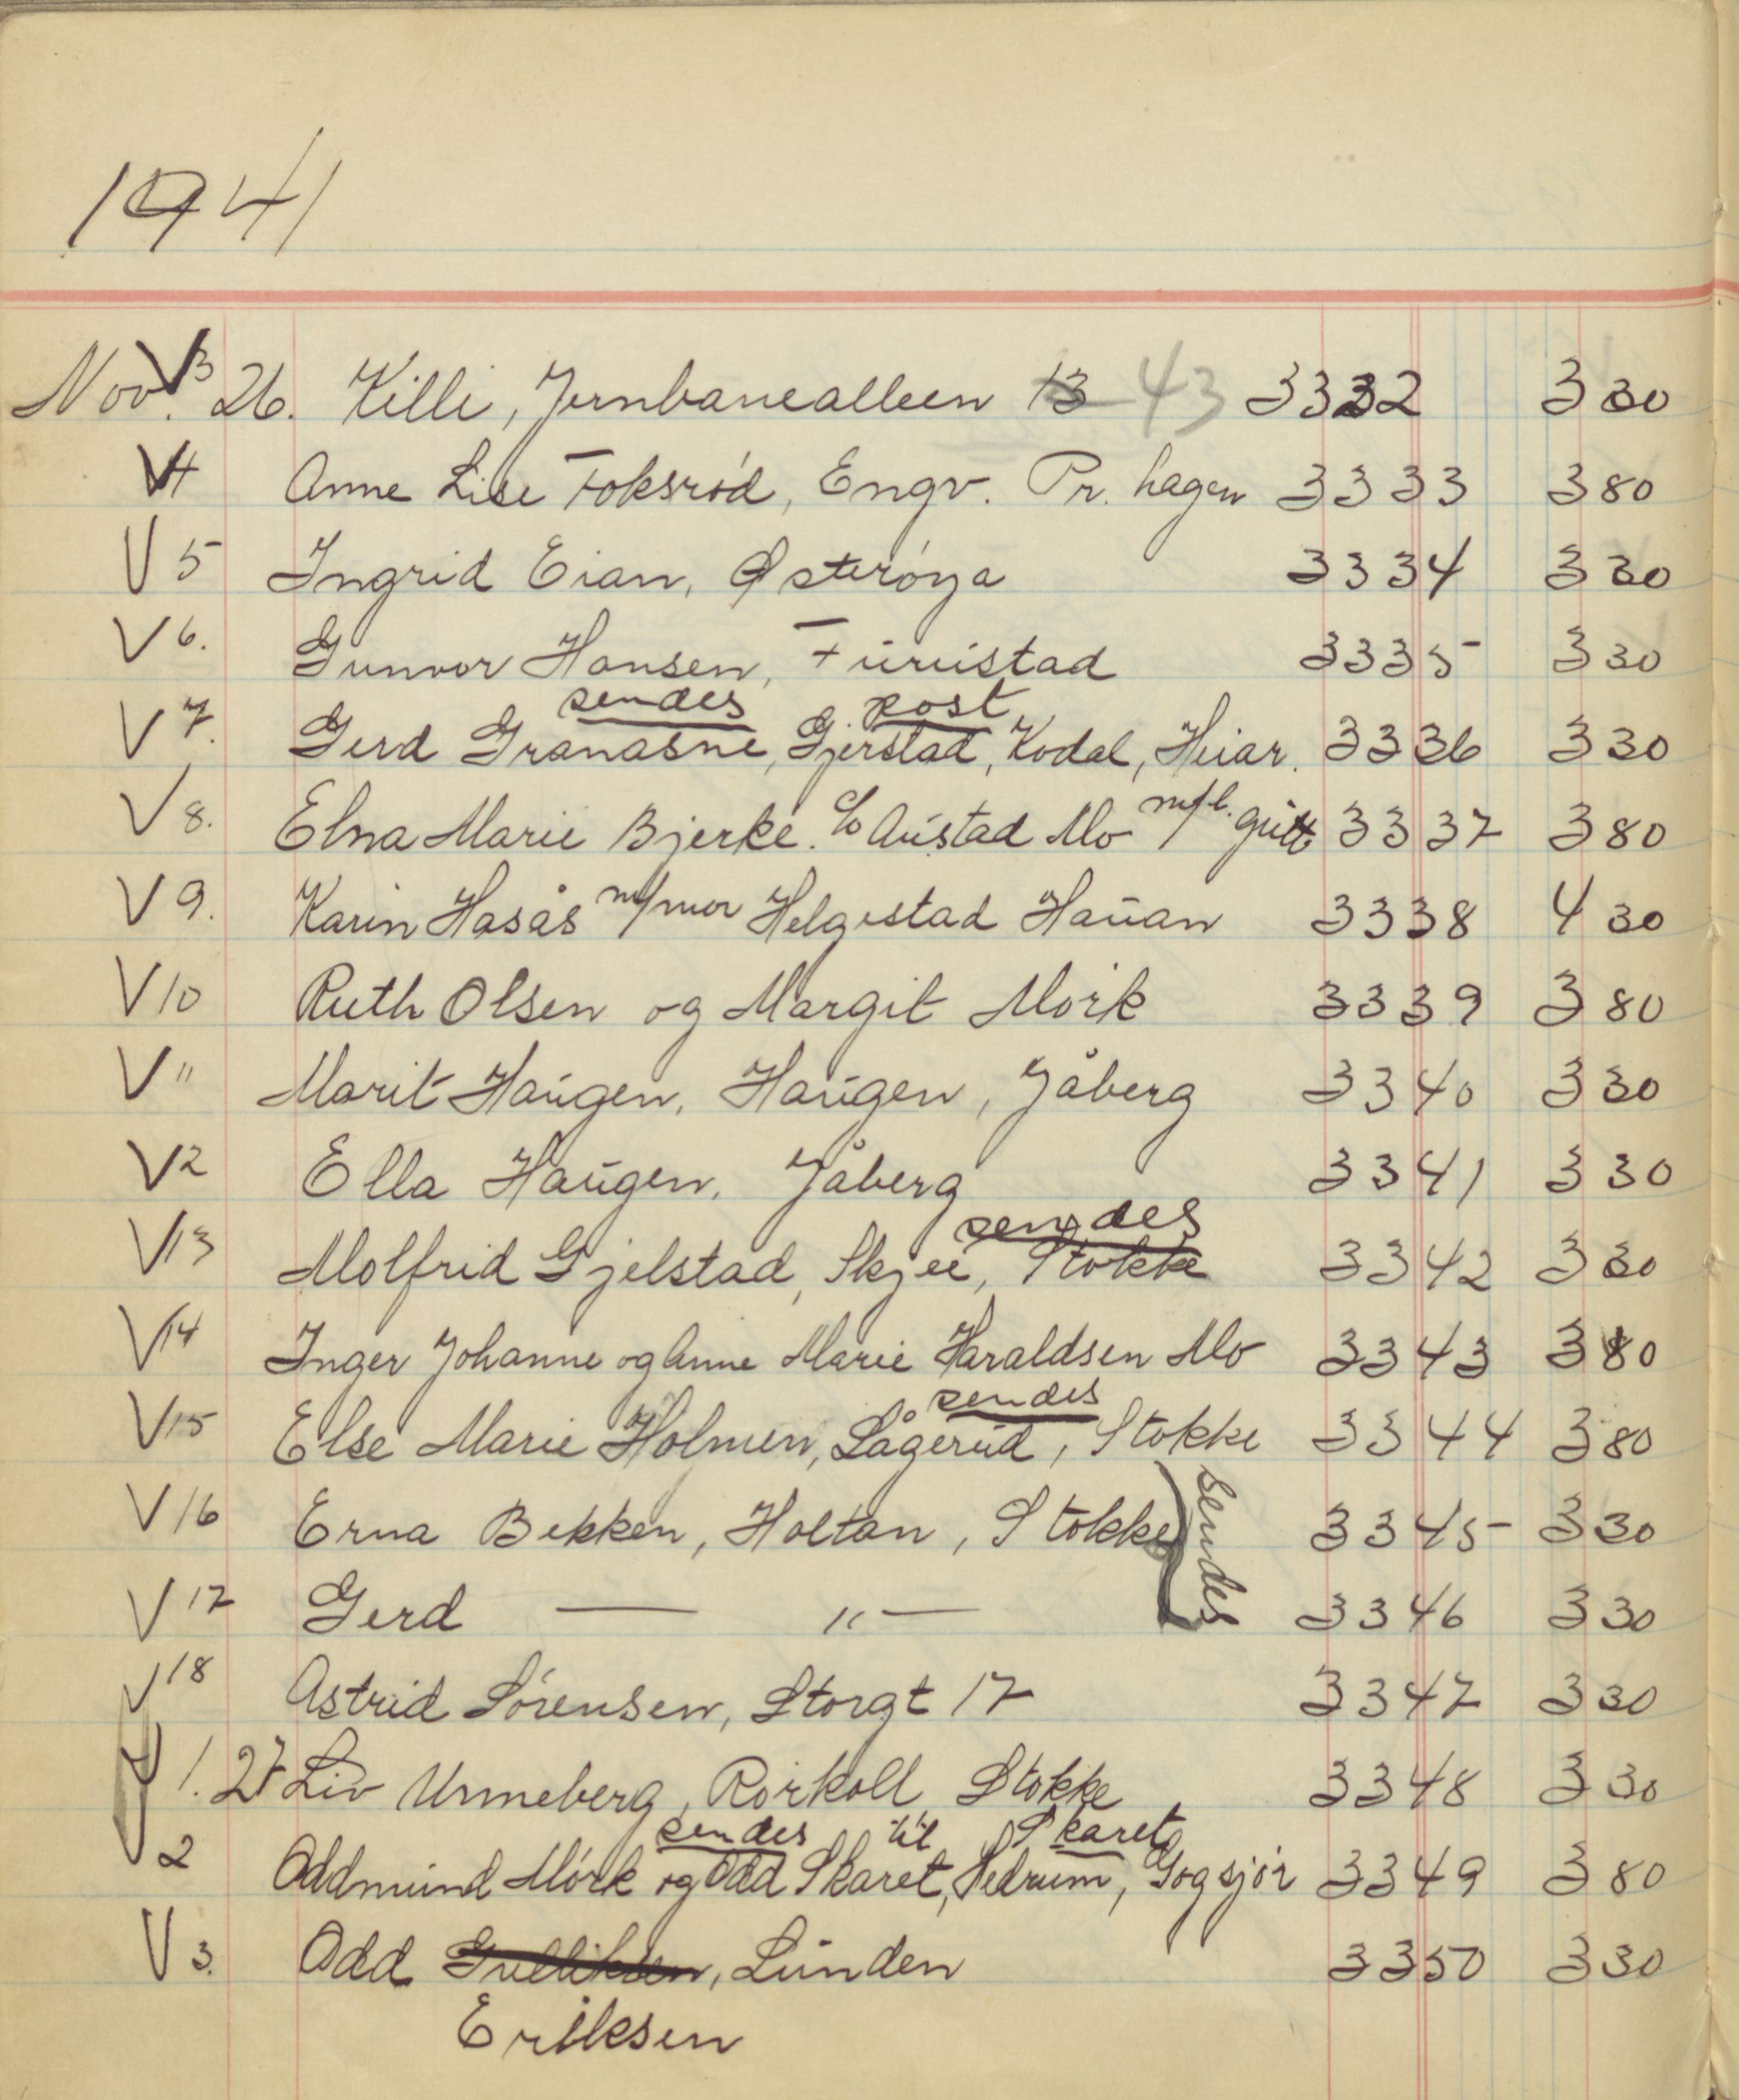 1941
Nov. V3 26. Killi, Jernbanealleen 13 43 3332 3 30
V4 Anne Lise Foksrød, Engv. Pr. hagen 3333 3 80
V 5 Ingrid Eian, Østerøya 3334 3 30
V 6. Gunvor Hansen, Furustad 3335 3 30
sendes post
V 7. Gerd Granasne, Gjerstad, Kodal, Heiar. 3336 3 30
V 8. Elna Marie Bjerke. c/o Austad Mo m/l. gutt 3337 3 80
V 9. Karin Hasås m/mor Helgestad Hauan 3338 4 30
V 10 Ruth Olsen og Margit Mørk 3339 3 80
V 11 Marit Haugen, Haugen, Jåberg 3340 3 30
V2 Ella Haugen, Jåberg 3341 3 30
sendes
V13 Molfrid Gjelstad, Skjee, Stokke 3342 3 30
V14 Inger Johanne og Anne Marie Haraldsen Mo 3343 3 80
sendes
V15 Else Marie Holmen, Lågerud, Stokke 3344 3 80
V 16 Erna Bekken, Holtan, Stokke sendes 3345 3 30
V 17 Gerd — " — 3346 3 30
V 18 Astrid Sørensen, Storgt 17 3347 3 30
V 1. 27 Liv Unneberg, Rørkoll Stokke 3348 3 30
sendes til Skaret
V 2 Oddmund Mørk og Odd Skaret, Hedrum, Gogsjør 3349 3 80
V 3. Odd Gulliksen, Lunden 3350 3 30
Eriksen